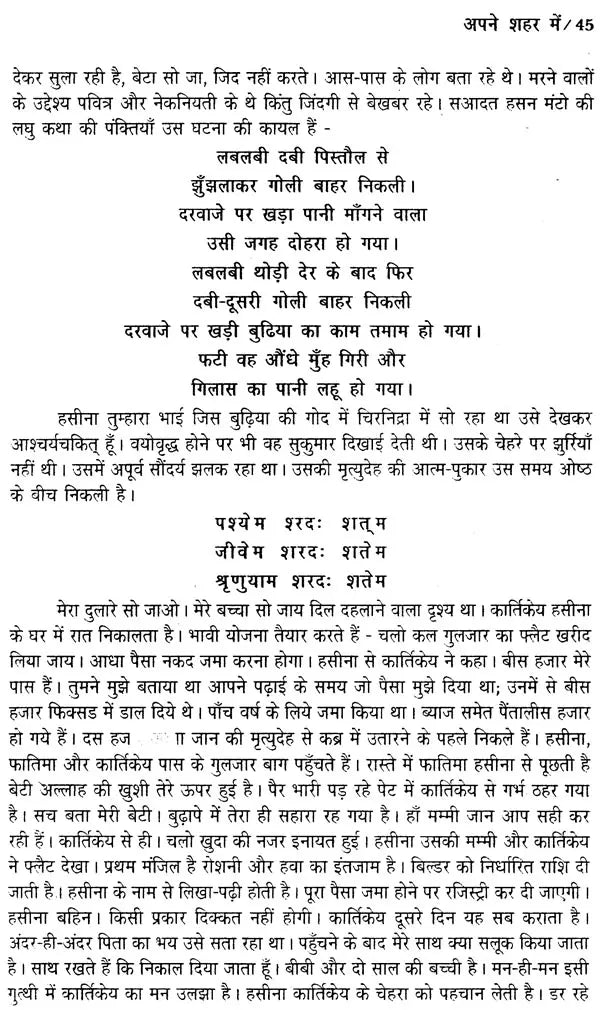 अपने शहर में/ 45
देकर सुला रही है, बेटा सो जा, जिद नहीं करते। आस-पास के लोग बता रहे थे। मरने वालों
के उद्देश्य पवित्र और नेकनियती के थे किंतु जिंदगी से बेखबर रहे। सआदत हसन मंटो की
लघु कथा की पंक्तियाँ उस घटना की कायल हैं -
लबलबी दबी पिस्तौल से
झुँझलाकर गोली बाहर निकली।
दरवाजे पर खड़ा पानी माँगने वाला
उसी जगह दोहरा हो गया।
लबलबी थोड़ी देर के बाद फिर
दबी-दूसरी गोली बाहर निकली
दरवाजे पर खड़ी बुढिया का काम तमाम हो गया।
फटी वह औंधे मुँह गिरी और
गिलास का पानी लहू हो गया।
हसीना तुम्हारा भाई जिस बुढ़िया की गोद में चिरनिद्रा में सो रहा था उसे देखकर
आश्चर्यचकित् हूँ। वयोवृद्ध होने पर भी वह सुकुमार दिखाई देती थी। उसके चेहरे पर झुर्रियाँ
नहीं थी। उसमें अपूर्व सौंदर्य झलक रहा था। उसकी मृत्युदेह की आत्म-पुकार उस समय ओष्ठ
के बीच निकली है।
पश्येम शरदः शत्म
जीवेम शरदः शतेम
श्रृणुयाम शरदः शतेम
मेरा दुलारे सो जाओ। मेरे बच्चा सो जाय दिल दहलाने वाला दृश्य था। कार्तिकेय हसीना
के घर में रात निकालता है। भावी योजना तैयार करते हैं - चलो कल गुलजार का फ्लैट खरीद
लिया जाय। आधा पैसा नकद जमा करना होगा। हसीना से कार्तिकेय ने कहा। बीस हजार मेरे
पास हैं। तुमने मुझे बताया था आपने पढ़ाई के समय जो पैसा मुझे दिया था; उनमें से बीस
हजार फिक्सड में डाल दिये थे। पाँच वर्ष के लिये जमा किया था। ब्याज समेत पैंतालीस हजार
हो गये हैं। दस हज जान की मृत्युदेह से कब्र में उतारने के पहले निकले हैं। हसीना,
फातिमा और कार्तिकेय पास के गुलजार बाग पहुँचते हैं। रास्ते में फातिमा हसीना से पूछती है
बेटी अल्लाह की खुशी तेरे ऊपर हुई है। पैर भारी पड़ रहे पेट में कार्तिकेय से गर्भ ठहर गया
है। सच बता मेरी बेटी। बुढ़ापे में तेरा ही सहारा रह गया है। हाँ मम्मी जान आप सही कर
रही हैं। कार्तिकेय से ही। चलो खुदा की नजर इनायत हुई। हसीना उसकी मम्मी और कार्तिकेय
ने फ्लैट देखा। प्रथम मंजिल है रोशनी और हवा का इंतजाम है। बिल्डर को निर्धारित राशि दी
जाती है। हसीना के नाम से लिखा-पढ़ी होती है। पूरा पैसा जमा होने पर रजिस्ट्री कर दी जाएगी।
हसीना बहिन। किसी प्रकार दिक्कत नहीं होगी। कार्तिकेय दूसरे दिन यह सब कराता है।
अंदर-ही-अंदर पिता का भय उसे सता रहा था। पहुँचने के बाद मेरे साथ क्या सलूक किया जाता
है। साथ रखते हैं कि निकाल दिया जाता हूँ। बीबी और दो साल की बच्ची है। मन-ही-मन इसी
गुत्थी में कार्तिकेय का मन उलझा है। हसीना कार्तिकेय के चेहरा को पहचान लेती है। डर रहे